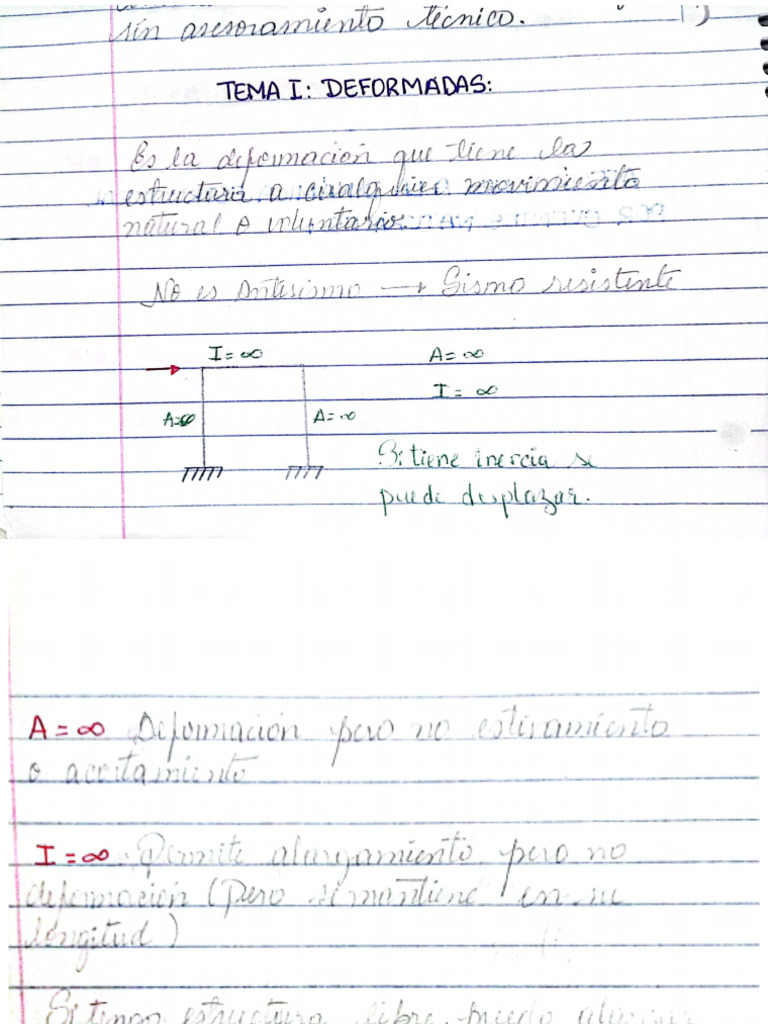 sin asesoramiento técnico.
TEMA I: DEFORMADAS:
Es la deformación que tiene la
estructura a cualquier movimiento
natural o voluntario.
No es Antisismo → Sismo resistente
I = ∞
A = ∞
I = ∞
A = ∞
A = ∞
Si tiene inercia se
puede desplazar.
A = ∞ Deformación pero no estiramiento
o acortamiento
I = ∞ Permite alargamiento pero no
deformación (Pero se mantiene en su
longitud)
Si tengo estructura libre puedo alargar